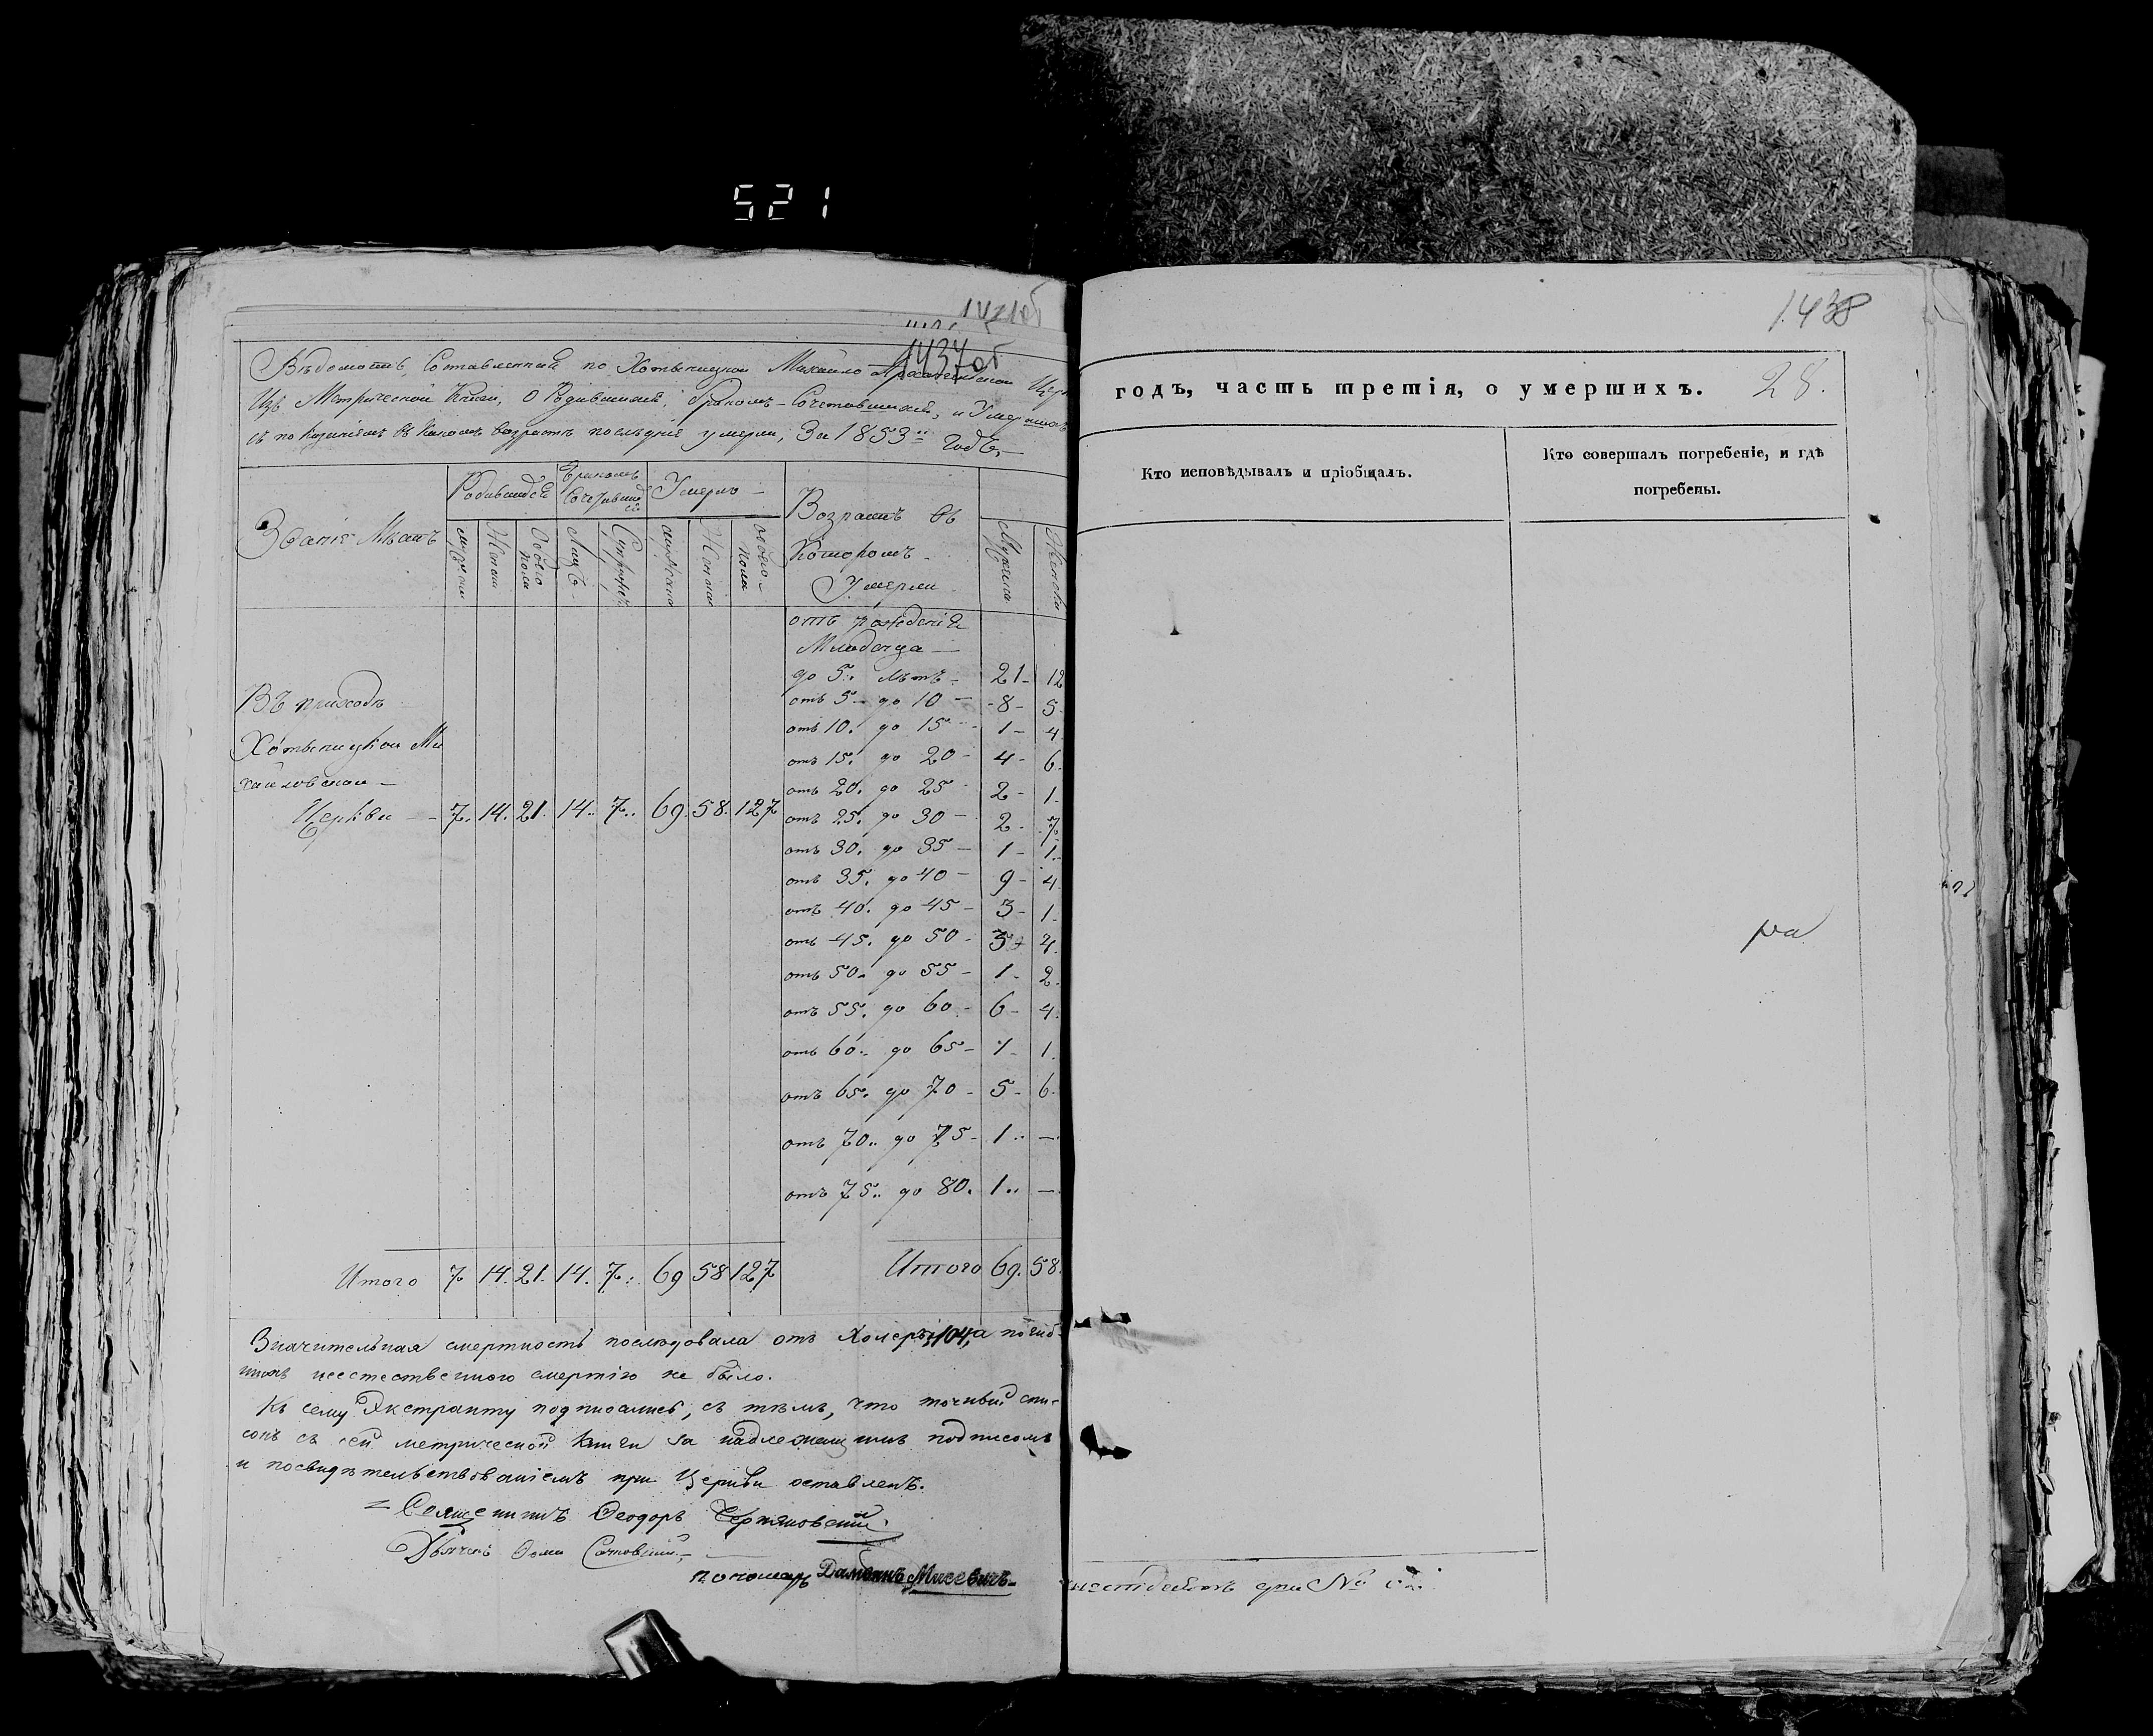 521
1437об
Вѣдомость, Составленная по Хотѣницкой Михайло Архангельской
Изъ Метрической Книги, О Родившихся, бракомъ-Сочетавшихся, и Умершихъ
въ какомъ возрастѣ послѣдніе умерли, За 1853й Годъ,
Званіе Мѣстъ
Родившихся
Бракомъ Сочетавшихся
Умерло
Возрастъ въ
Которомъ
Умерли
Женска
Обоего пола
Лицъ
Женска
обоего пола
отъ рожденія
Младенца
до 5. лѣтъ - 21 - 12
отъ 5 до 10 - 8 - 5
отъ 10. до 15 - 1 - 4
отъ 15. до 20 - 4 - 6.
отъ 20. до 25 - 2 - 1.
отъ 25. до 30 - 2 - 7.
отъ 30. до 35 - 1 - 1.
отъ 35. до 40 - 9 - 4
отъ 40. до 45 - 3 - 1.
отъ 45. до 50 - 3 - 4.
отъ 50. до 55 - 1 - 2.
отъ 55. до 60 - 6 - 4.
отъ 60. до 65 - 1 - 1.
отъ 65. до 70 - 5 - 6.
отъ 70. до 75 - 1 -
отъ 75. до 80. 1 -
Въ приходѣ
Хотѣницкой Ми
хайловской
Церкви - 7. 14. 21. 14. 7. 69. 58. 127
Итого 7 14. 21. 14. 7. 69 58 127
Итого 69. 58.
Значительная смертность послѣдовала отъ Холеры 104, а погиб-
шихъ неестественною смертію не было.
Къ сему Экстракту подписались, съ тѣмъ, что точный спи-
сокъ съ сей метрической Книги за надлежащимъ подписомъ
и посвидѣтельствованіемъ при Церкви оставленъ.
Священникъ Ѳеодоръ
Дьячекъ Ѳома
пономарь Даміанъ Мисевичъ
1438
годъ, часть третія, о умершихъ. 28.
Кто исповѣдывалъ и пріобщалъ.
Кто совершалъ погребеніе, и гдѣ
погребены.
ра